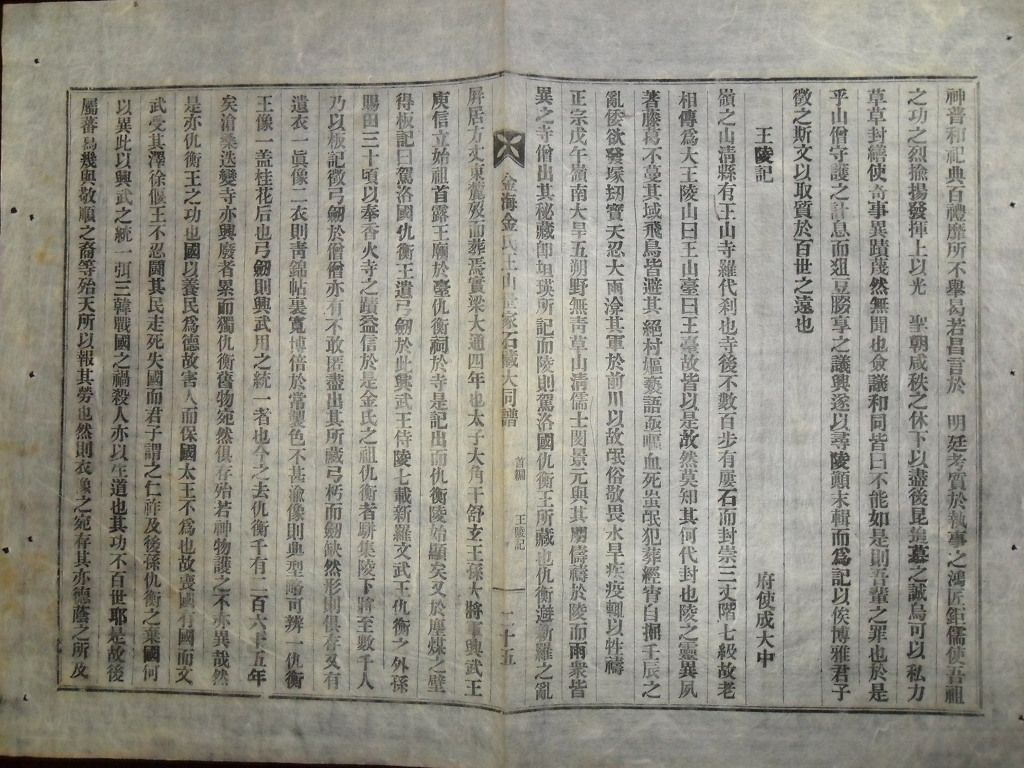 神普和祀典百禮靡所不擧曷若昌言於 明廷考質於執事之鴻匠鉅儒使吾祖
之功之烈揄揚發揮上以光 聖朝咸秩之休下以盡後昆追慕之誠烏可以私力
草草封繕使奇事異蹟蔑然無聞也僉議和同皆曰不能如是則吾輩之罪也於是
乎山僧守護之計息而俎豆腏享之議興遂以尋陵顚末輯而爲記以俟博雅君子
徵之斯文以取質於百世之遠也
王陵記 府使成大中
嶺之山淸縣有王山寺羅代刹也寺後不數百步有屢石而封崇三丈階七級故老
相傳爲大王陵山曰王山臺曰王臺故皆以是故然莫知其何代封也陵之靈異夙
著藤葛不蔓其域飛鳥皆避其 絕村嫗褻語輒嘔血死蚩氓犯葬經宵自掘壬辰之
亂倭欲發塚刼寶天忍大雨渰其軍於前川以故氓俗敬畏水旱疾疫輒以牲禱
正宗戊午嶺南大旱五朔野無靑草山淸儒士閔景元與其朋儔禱於陵而雨衆皆
異之寺僧出其秘藏卽坦瑛所記而陵則駕洛國仇衡王所藏也仇衡避新羅之亂
金海金氏王山 家石藏大同譜 首編 王陵記 二十五
屛居方丈東麓歿而葬焉實梁大通四年也太子大角干舒玄王孫大將軍興武王
庾信立始祖首露王廟於臺仇衡祠於寺是記出而仇衡陵始顯矣又於塵煤之壁
得板記曰駕洛國仇衡王遺弓劒於此興武王侍陵七載新羅文武王仇衡之外孫
賜田三十頃以奉香火寺之蹟益信於是金氏之祖仇衡者駢集陵下將至數千人
乃以板記徵弓劒於僧僧亦有不敢匿盡出其所藏弓朽而劒缺然形則俱存又有
遺衣一眞像二衣則靑錦帖裏寬博倍於常製色不甚渝像則典型略可辨一仇衡
王像一盖桂花后也弓劒則興武用之統一者也今之去仇衡千有二百六十五年
矣滄桑迭變寺亦興廢者累而獨仇衡舊物宛然俱存殆若神物護之不亦異哉然
是亦仇衡王之功也國以養民爲德故害人而保國太王不爲也故喪國有國而文
武受其澤徐偃王不忍鬪其民走死失國而君子謂之仁祚及後孫仇衡之棄國何
以異此以興武之統一弭三韓戰國之禍殺人亦以生道也其功不百世耶是故後
屬蕃 幾與敬順之裔等殆天所以報其勞也然則衣像之宛存其亦德蔭之所及